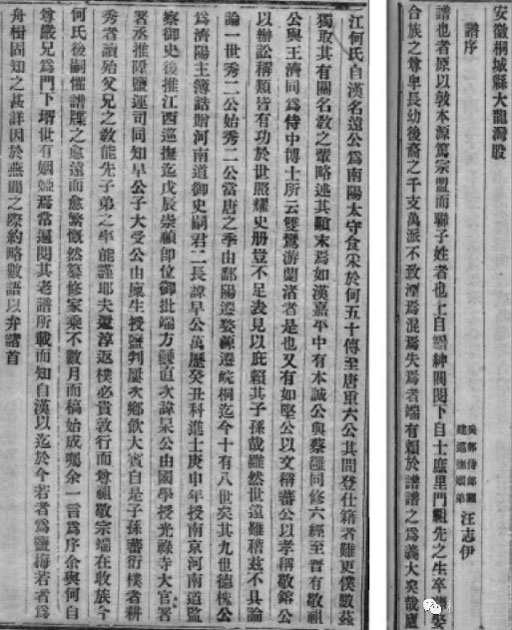 安徽桐城縣大龍灣股
譜序
吳部侍郎
建巡撫姻弟 汪志伊
譜也者原以敦本源篤宗盟而聯子姓者也上自縉紳閥閱下自士庶里門祖先之生卒葬娶
合族之尊卑長幼後裔之千支萬派不致湮焉混焉失焉者端有賴於譜譜之為義大矣哉廬
江何氏自漢名遠公為南陽太守食采於何五十傳至唐重六公其間登仕籍者難更僕數茲
獨取其有關名教之輩略述其顛末焉如漢嘉平中有本誠公與蔡邕同修六經至晉有敬祖
公與王濟同為侍中博士所云雙鸞游蘭渚者是也又有如堅公以文稱蕃公以孝稱敬鎔公
以辦訟稱類皆有功於世照耀史册豈不足表見以庇賴其子孫哉雖然世遠難稽茲不具論
論一世秀二公始秀二公當唐之季由鄱陽遷婺源遷皖桐迄今十有八世矣其九世德槐公
為濟陽主簿誥贈河南道御史嗣君二長諱早公萬歷癸丑科進士庚申年授南京河南道監
察御史後推江西巡撫迄戊辰崇禎卽位御批端方鯁直次諱杲公由國學授光祿寺大官署
署丞推陞鹽運司同知早公子大受公由廩生授鹽判屢次鄉飲大賓自是子孫蕃衍樸者耕
秀者讀殆父兄之教能先子弟之率能謹耶夫還淳返樸必貴敦行而尊祖敬宗端在收族今
何氏後嗣懼譜牒之愈遠而愈繁慨然纂修家乘不數月而稿始成囑余一言為序余與何自
尊嚴兄為門下壻世有姻婭焉常遍閱其老譜所載而知自漢以迄於今若者為鹽梅若者為
舟楫固知之甚詳因於燕閒之際約略數語以弁譜首